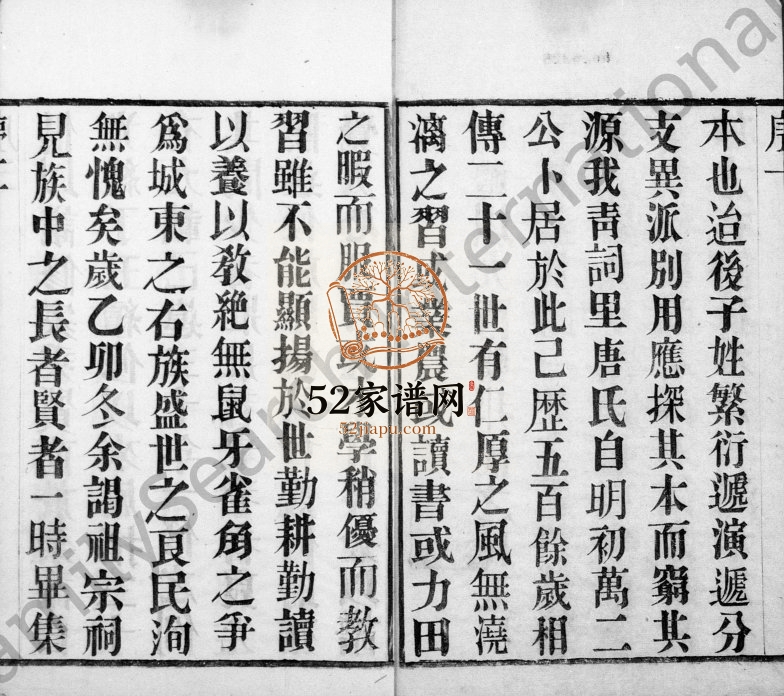 序一
本也迨後子姓繁衍遞演遞分
支異派別用應探其本而窮其
源我靑詞里唐氏自明初萬二
公卜居於此已歷五百餘歲相
傳二十一世有仁厚之風無澆
漓之習或業農或讀書或力田
之暇而服賈或學稍優而教
習雖不能顯揚於世勤耕勤讀
以養以敎絶無鼠牙雀角之爭
爲城東之右族盛世之良民洵
無愧矣歲乙卯冬余謁祖宗祠
見族中之長者賢者一時畢集
52家谱网
52jiapu.com
FamilySearch International